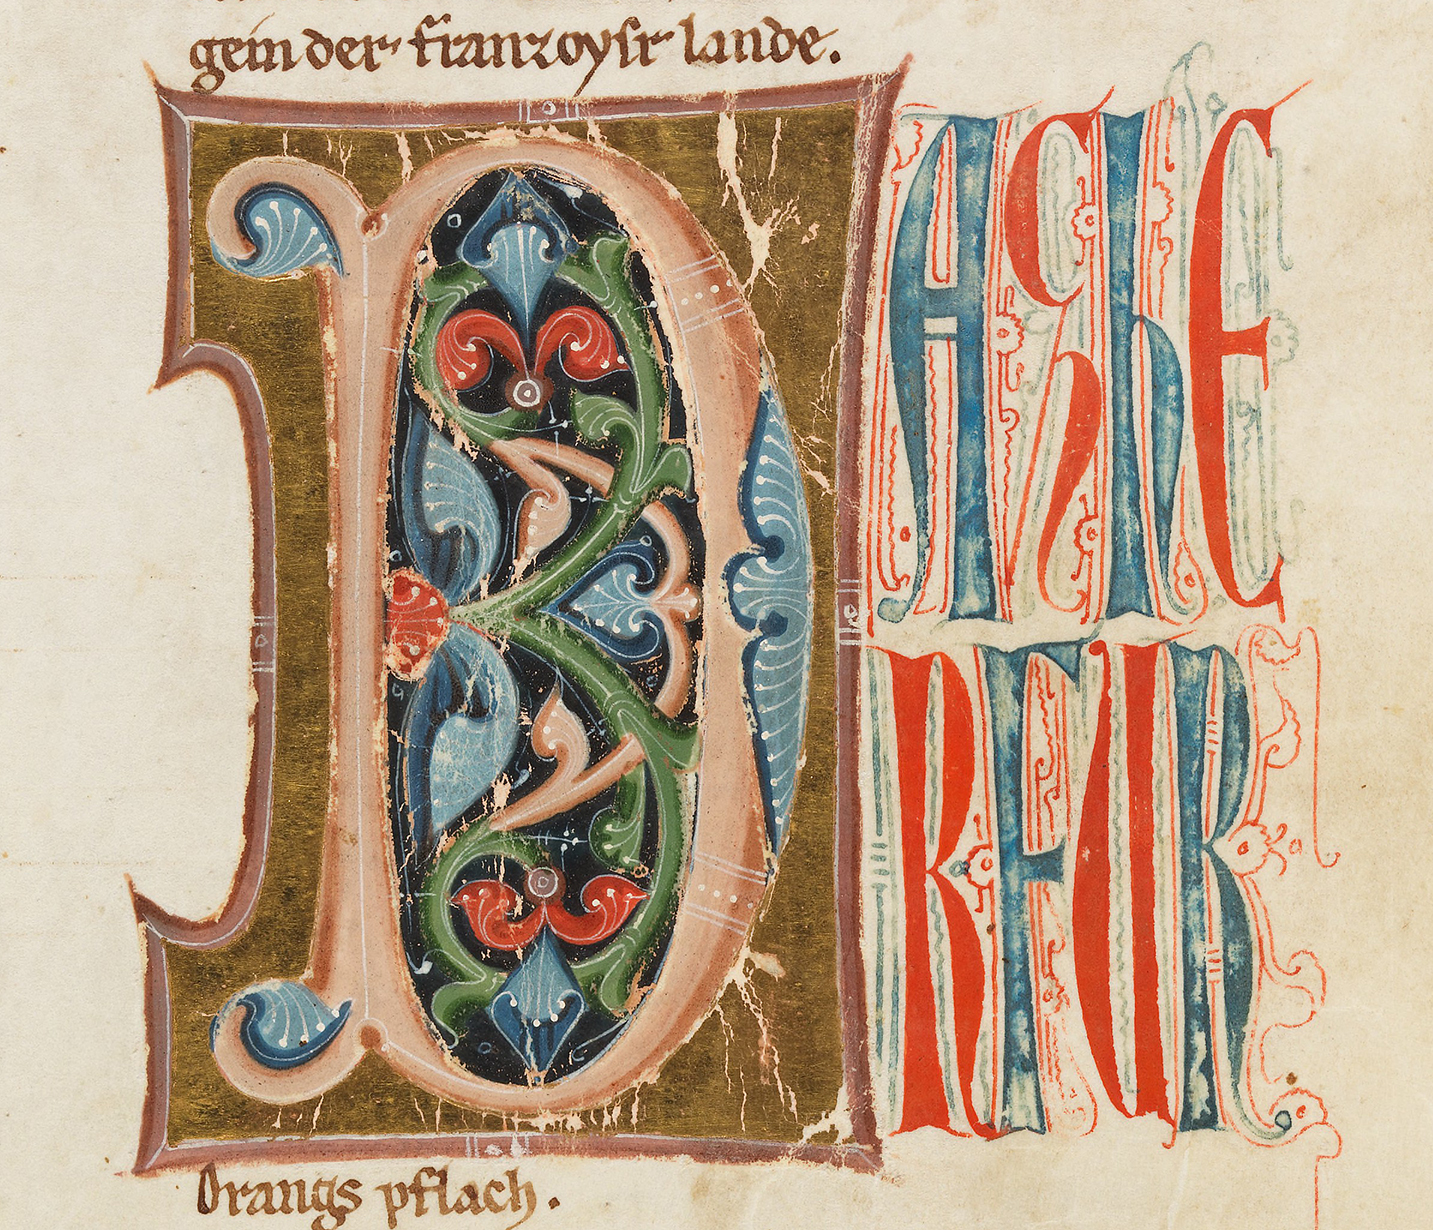 gein der franzoyſr lande.
DAShE
RFUR
Orangs pflach.